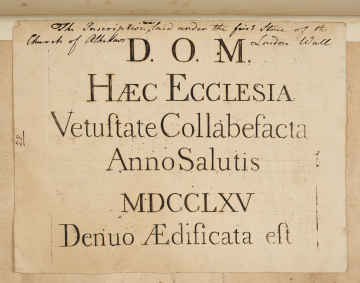 The Inscription was laid under the first Stone of the
Church of Allhallows London Wall
D. O. M.
HÆC ECCLESIA
Vetuſtate Collabefacta
Anno Salutis
MDCCLXV
Denuo Ædificata eſt
22